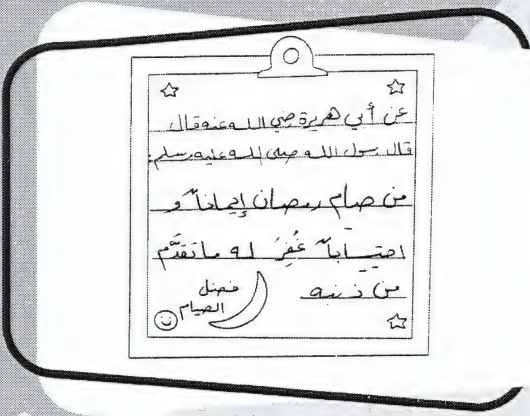 عن أبي هريرة رضي الله عنه قال
قال رسول الله صلى الله عليه وسلم:
من صام رمضان إيماناً و
احتساباً غُفِرَ له ما تقدَّم
من ذنبه
فضل
الصيام